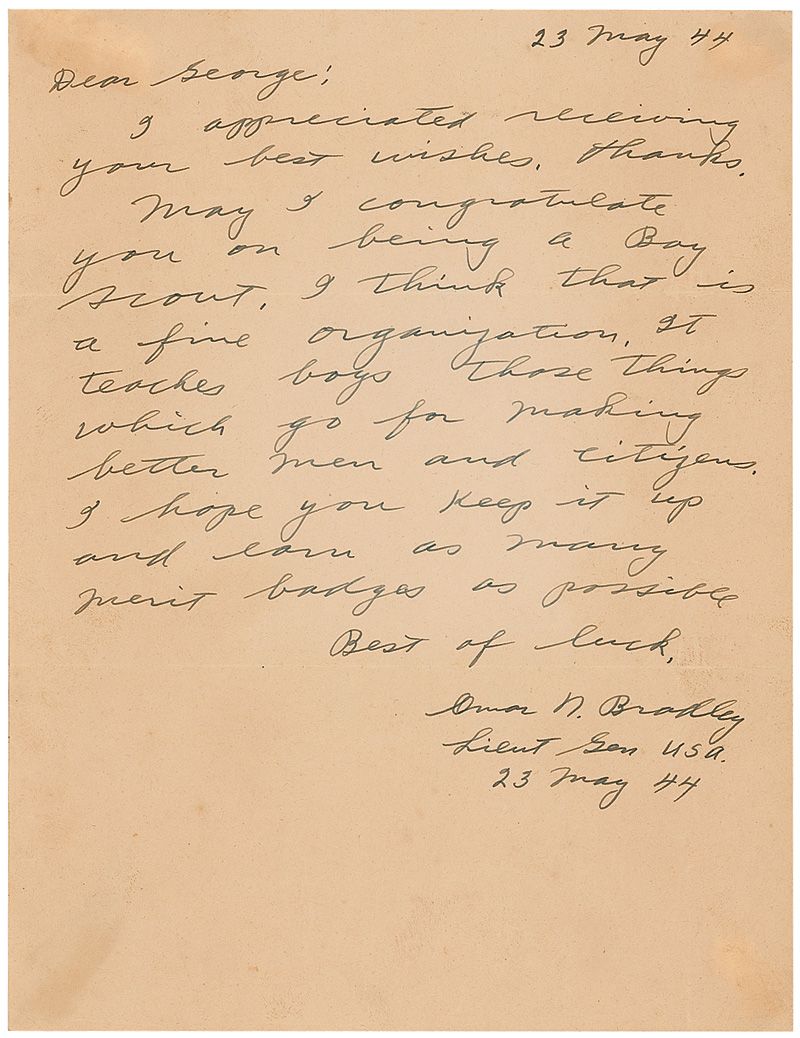 23 May 44
Dear George:
I appreciated receiving
your best wishes. Thanks.
May I congratulate
you on being a Boy
Scout. I think that is
a fine organization. It
teaches boys those things
which go for making
better men and citizens.
I hope you keep it up
and earn as many
merit badges as possible
Best of luck,
Omar N. Bradley
Lieut Gen USA.
23 May 44